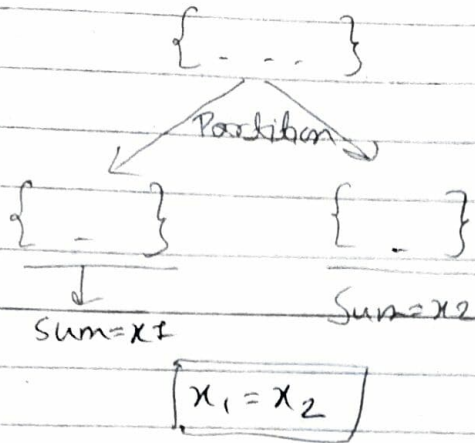 { - - - }
Partition
{ - } { - }
Sum=x1 Sum=x2
x1 = x2